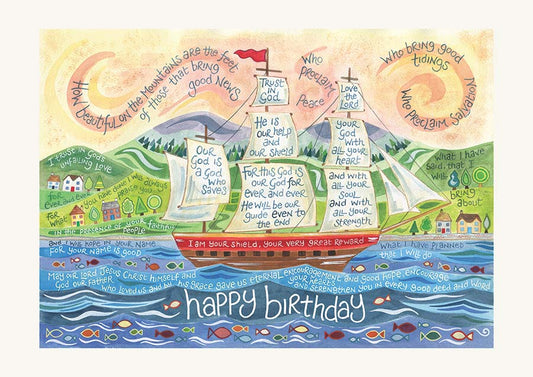 How beautiful on the Mountains are the feet
of those that bring
good news
Who
proclaim
Peace
Who bring good
tidings
Who proclaim
Salvation
Trust
in
God
He is
our help
and
our shield
Our
God is
a God
who
Saves
For this God is
our God for
ever and ever
He will be our
guide even to
the end
Love
the
Lord
your
God
with
all your
heart
and
with all
your soul
and with
all your
strength
I trust in God's
unfailing love
for
ever and ever
For
what
you have done I will always
praise you
in the presence of your faithful
people
and I will hope in your name
For your name is good
What I have
said, that I
will
bring
about
What I have planned
that I will do
I am your shield, your very great reward
May our Lord Jesus Christ himself and
God our Father
who loved us and by his grace gave us eternal encouragement and good hope, encourage
your hearts
and strengthen you in every good deed and word
happy birthday